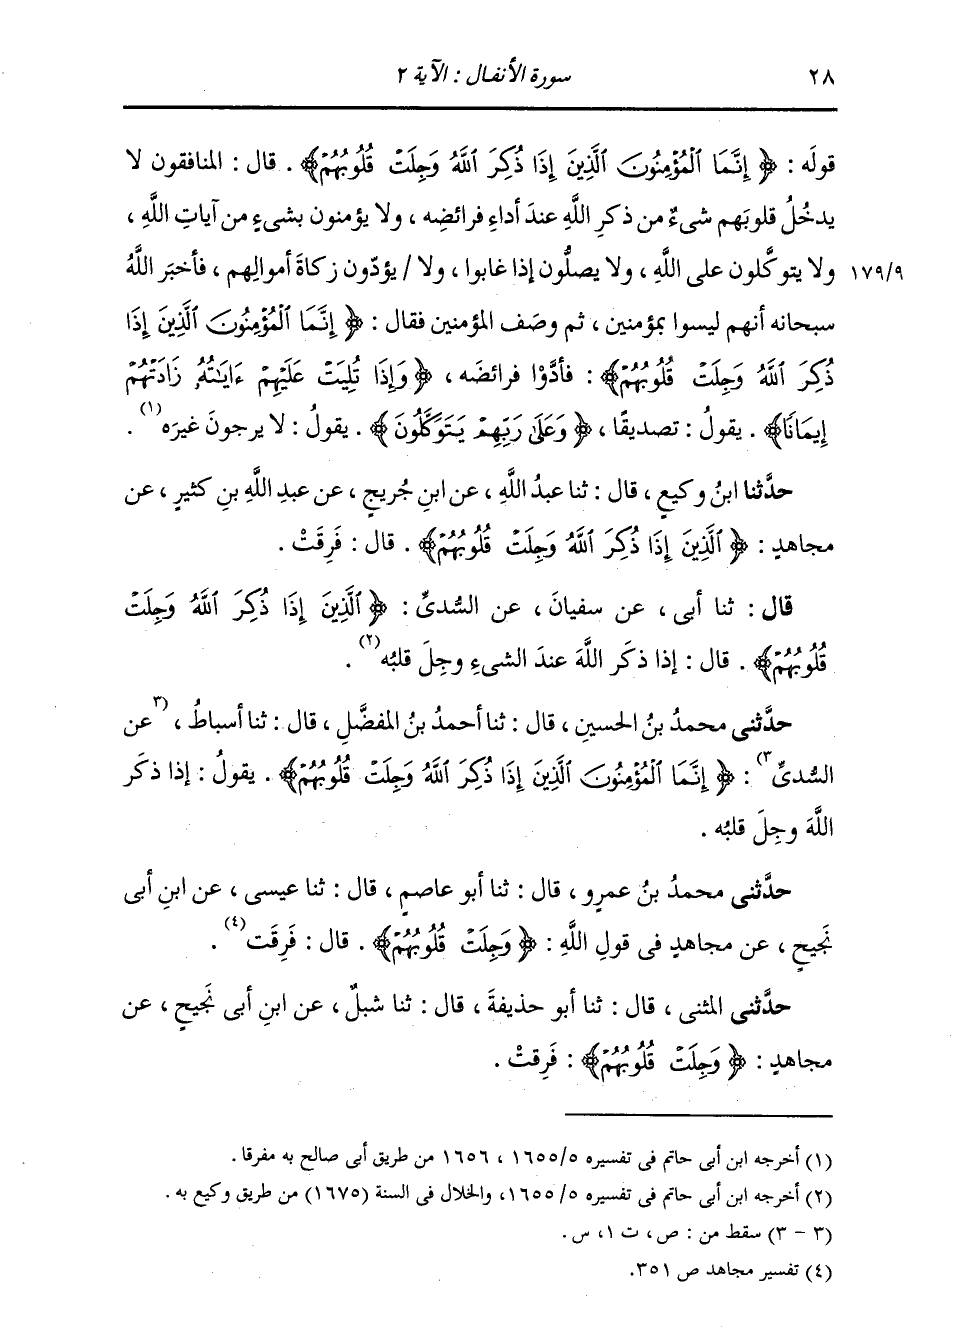 ٢٨ سورة الأنفال : الآية ٢
قولَه : ﴿ إِنَّمَا ٱلْمُؤْمِنُونَ ٱلَّذِينَ إِذَا ذُكِرَ ٱللَّهُ وَجِلَتْ قُلُوبُهُمْ ﴾ . قال : المنافقون لا
يدخُلُ قلوبَهم شىءٌ من ذكرِ اللَّهِ عندَ أداءِ فرائضِه ، ولا يؤمنون بشىءٍ من آياتِ اللَّهِ ،
١٧٩/٩ ولا يتوكَّلون على اللَّهِ ، ولا يصلُّون إذا غابوا ، ولا / يؤدّون زكاةَ أموالِهم ، فأخبَر اللَّهُ
سبحانه أنهم ليسوا بمؤمنين ، ثم وصَف المؤمنين فقال : ﴿ إِنَّمَا ٱلْمُؤْمِنُونَ ٱلَّذِينَ إِذَا
ذُكِرَ ٱللَّهُ وَجِلَتْ قُلُوبُهُمْ ﴾ : فأدَّوْا فرائضَه ، ﴿ وَإِذَا تُلِيَتْ عَلَيْهِمْ ءَايَٰتُهُۥ زَادَتْهُمْ
إِيمَانًا ﴾ . يقولُ : تصديقًا ، ﴿ وَعَلَىٰ رَبِّهِمْ يَتَوَكَّلُونَ ﴾ . يقولُ : لا يرجونَ غيرَه(١) .
حدَّثنا ابنُ وكيعٍ ، قال : ثنا عبدُ اللَّهِ ، عن ابنِ جُريجٍ ، عن عبدِ اللَّهِ بنِ كثيرٍ ، عن
مجاهدٍ : ﴿ ٱلَّذِينَ إِذَا ذُكِرَ ٱللَّهُ وَجِلَتْ قُلُوبُهُمْ ﴾ . قال : فَرِقَتْ .
قال : ثنا أبى ، عن سفيانَ ، عن السُّدىِّ : ﴿ ٱلَّذِينَ إِذَا ذُكِرَ ٱللَّهُ وَجِلَتْ
قُلُوبُهُمْ ﴾ . قال : إذا ذكَر اللَّهَ عندَ الشىءِ وجِلَ قلبُه(٢) .
حدَّثنى محمدُ بنُ الحسينِ ، قال : ثنا أحمدُ بنُ المفضَّلِ ، قال : ثنا أسباطُ ، (٣عن
السُّدىِّ٣) : ﴿ إِنَّمَا ٱلْمُؤْمِنُونَ ٱلَّذِينَ إِذَا ذُكِرَ ٱللَّهُ وَجِلَتْ قُلُوبُهُمْ ﴾ . يقولُ : إذا ذكَر
اللَّهَ وجِلَ قلبُه .
حدَّثنى محمدُ بنُ عمرٍو ، قال : ثنا أبو عاصمٍ ، قال : ثنا عيسى ، عن ابنِ أبى
نَجيحٍ ، عن مجاهدٍ فى قولِ اللَّهِ : ﴿ وَجِلَتْ قُلُوبُهُمْ ﴾ . قال : فَرِقَت(٤) .
حدَّثنى المثنى ، قال : ثنا أبو حذيفةَ ، قال : ثنا شبلٌ ، عن ابنِ أبى نَجيحٍ ، عن
مجاهدٍ : ﴿ وَجِلَتْ قُلُوبُهُمْ ﴾ : فَرِقتْ .
(١) أخرجه ابن أبى حاتم فى تفسيره ١٦٥٥/٥ ، ١٦٥٦ من طريق أبى صالح به مفرقا .
(٢) أخرجه ابن أبى حاتم فى تفسيره ١٦٥٥/٥، والخلال فى السنة (١٦٧٥) من طريق وكيع به .
(٣ - ٣) سقط من : ص، ت ١، س .
(٤) تفسير مجاهد ص ٣٥١.